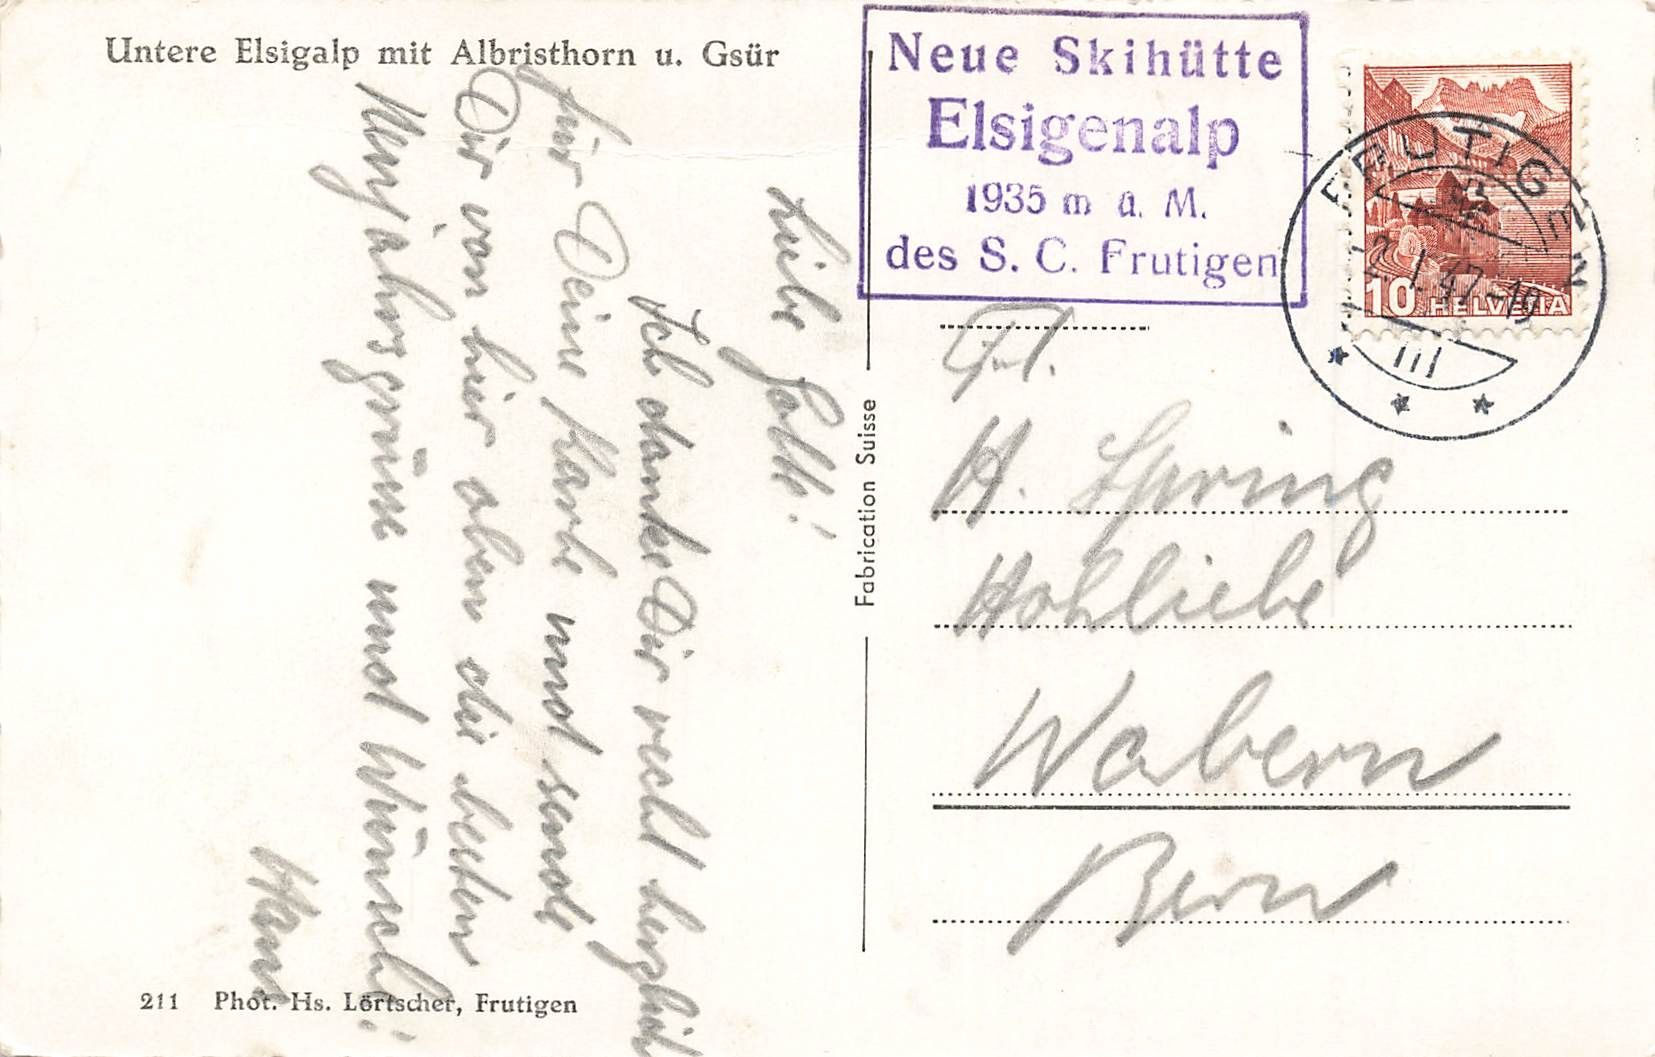 Untere Elsigalp mit Albristhorn u. Gsür
Neue Skihütte
Elsigenalp
1935 m ü. M.
des S. C. Frutigen
FRUTIGEN
2.I.47-19
10 HELVETIA
Liebe Gotte!
Ich danke Dir recht herzlich
für Deine Karte und sende
Dir von hier oben die besten
Neujahrsgrüsse und Wünsche!
Hans
Fabrication Suisse
Frl.
H. Spring
Hohliebe
Wabern
Bern
211 Phot. Hs. Lörtscher, Frutigen